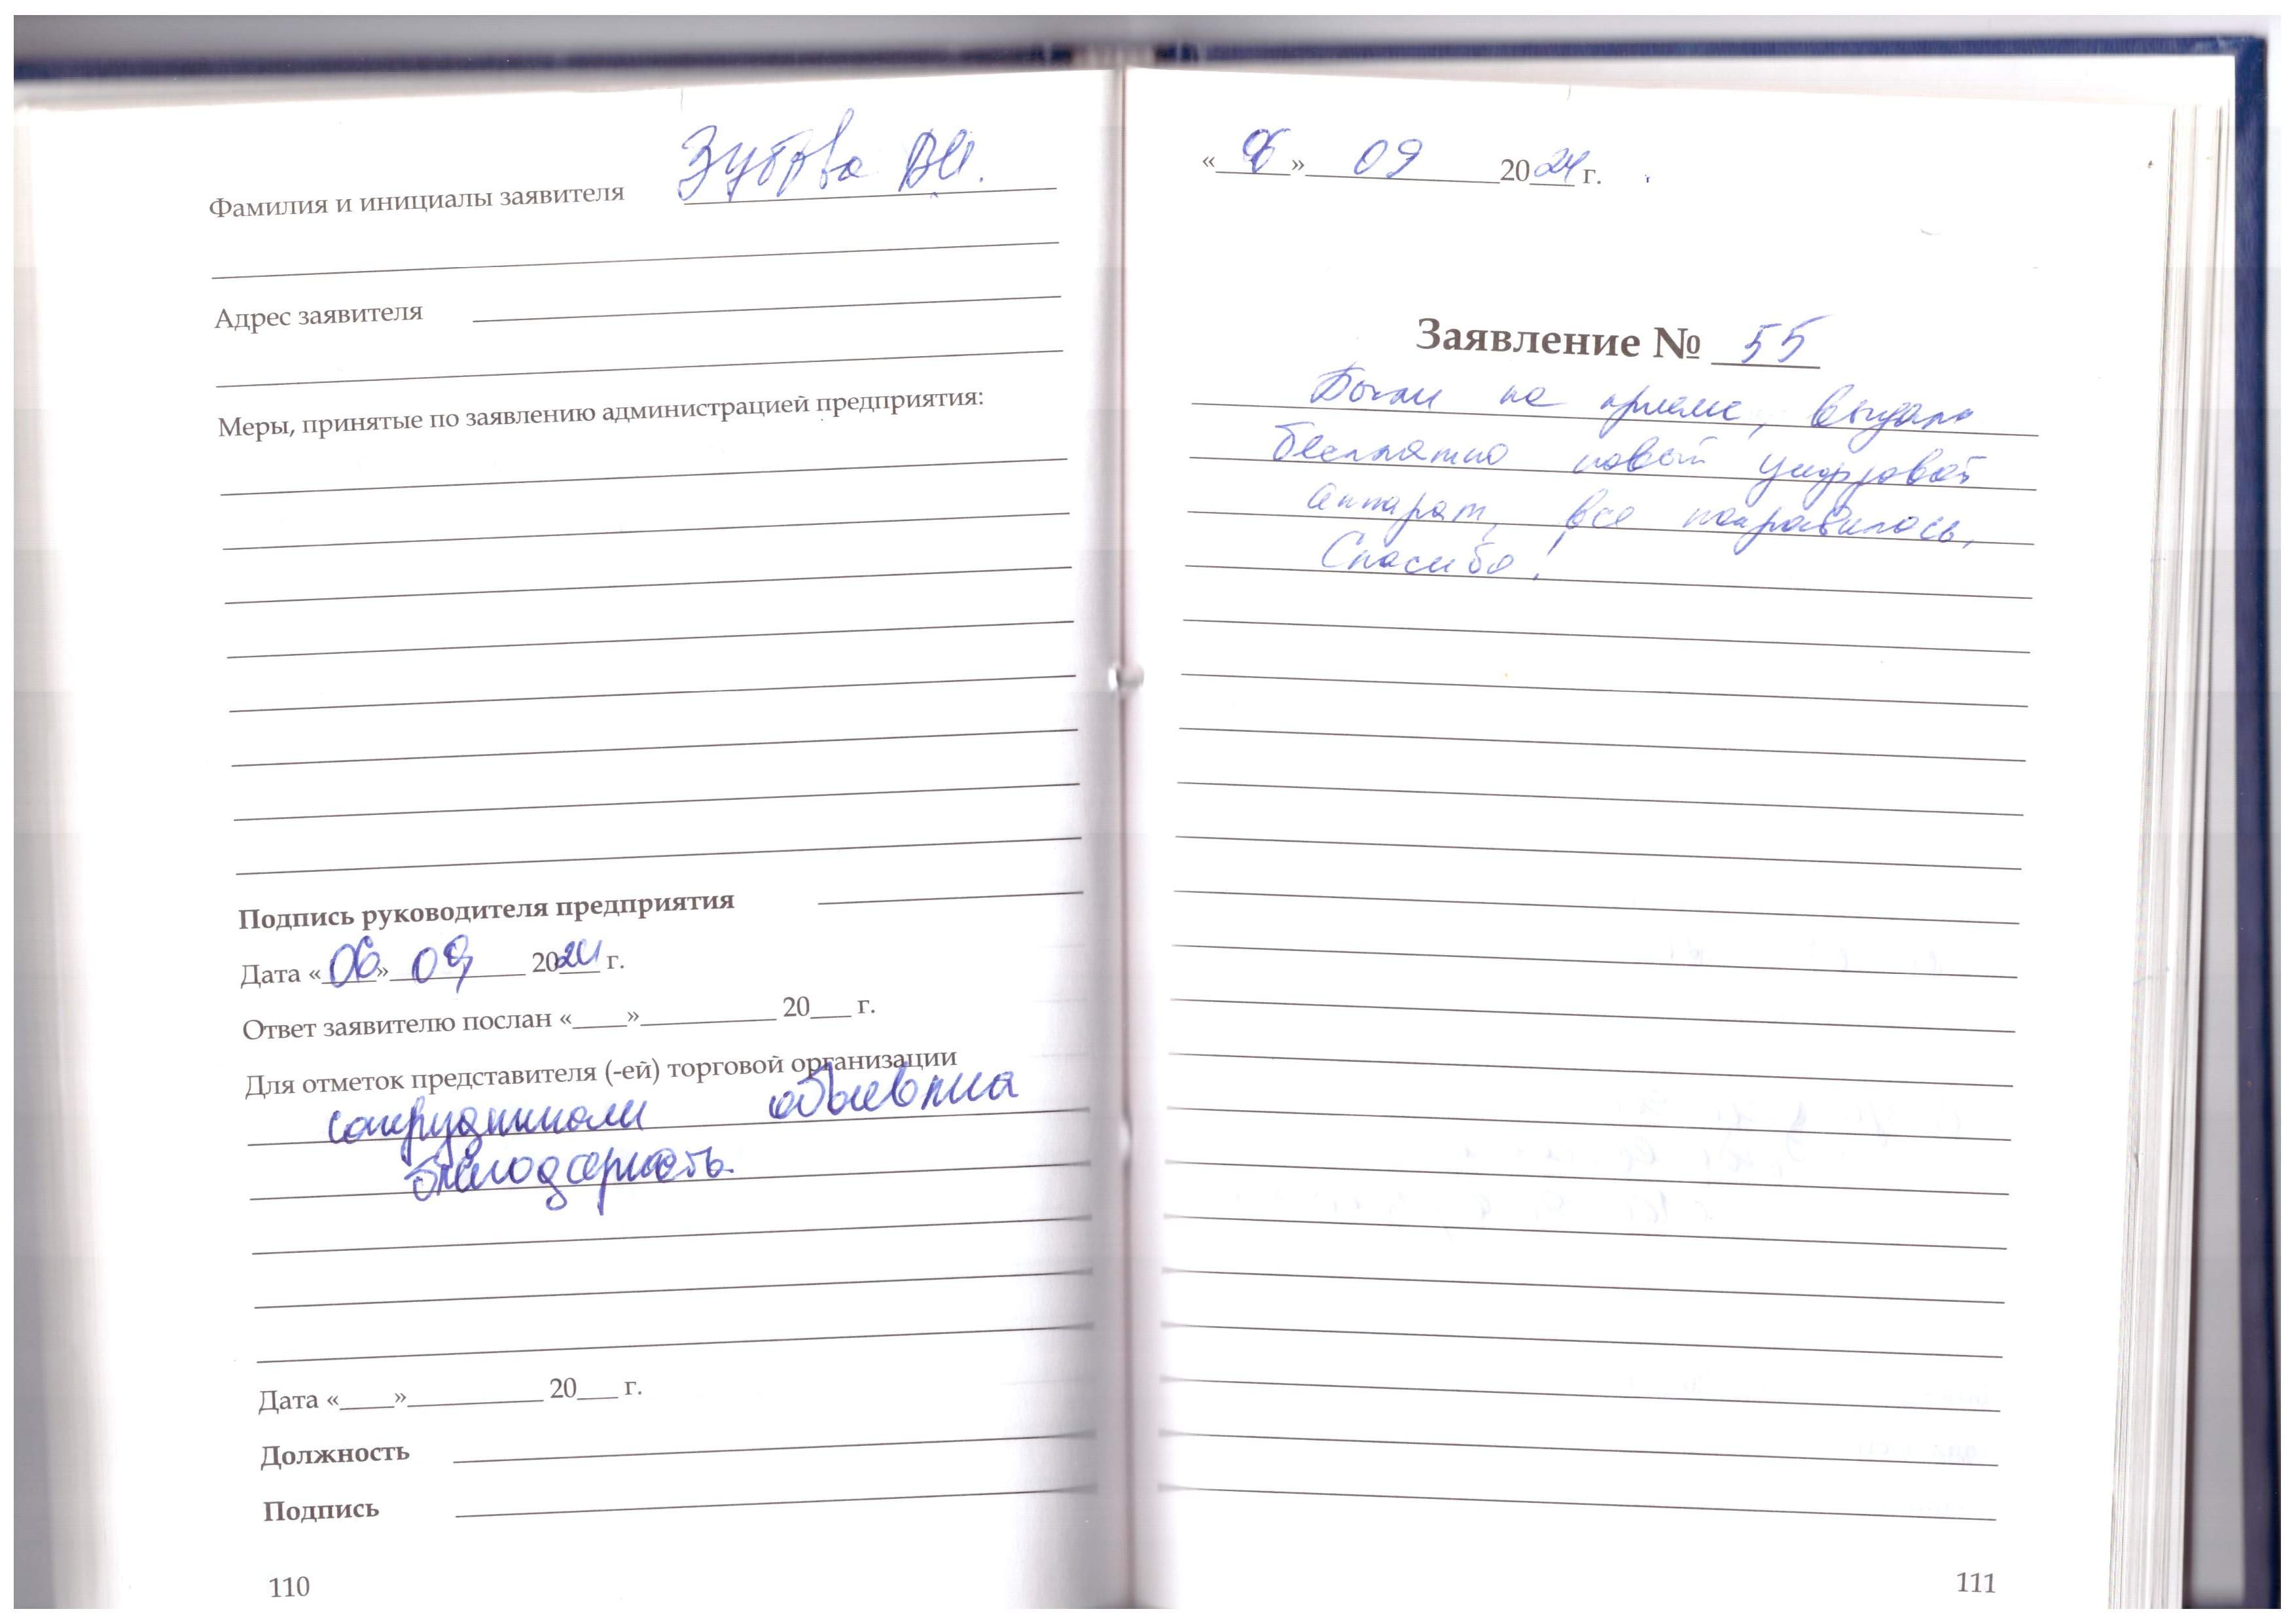 Фамилия и инициалы заявителя Зуброва В.И.
Адрес заявителя
Меры, принятые по заявлению администрацией предприятия:
Подпись руководителя предприятия
Дата «06» 09 2024 г.
Ответ заявителю послан «____»__________ 20___ г.
Для отметок представителя (-ей) торговой организации
сотрудникам объявлена
благодарность.
Дата «____»__________ 20___ г.
Должность
Подпись
110
«06» 09 2024 г.
Заявление № 55
Были на приеме, выдали
бесплатно новый цифровой
аппарат, все понравилось,
Спасибо!
111